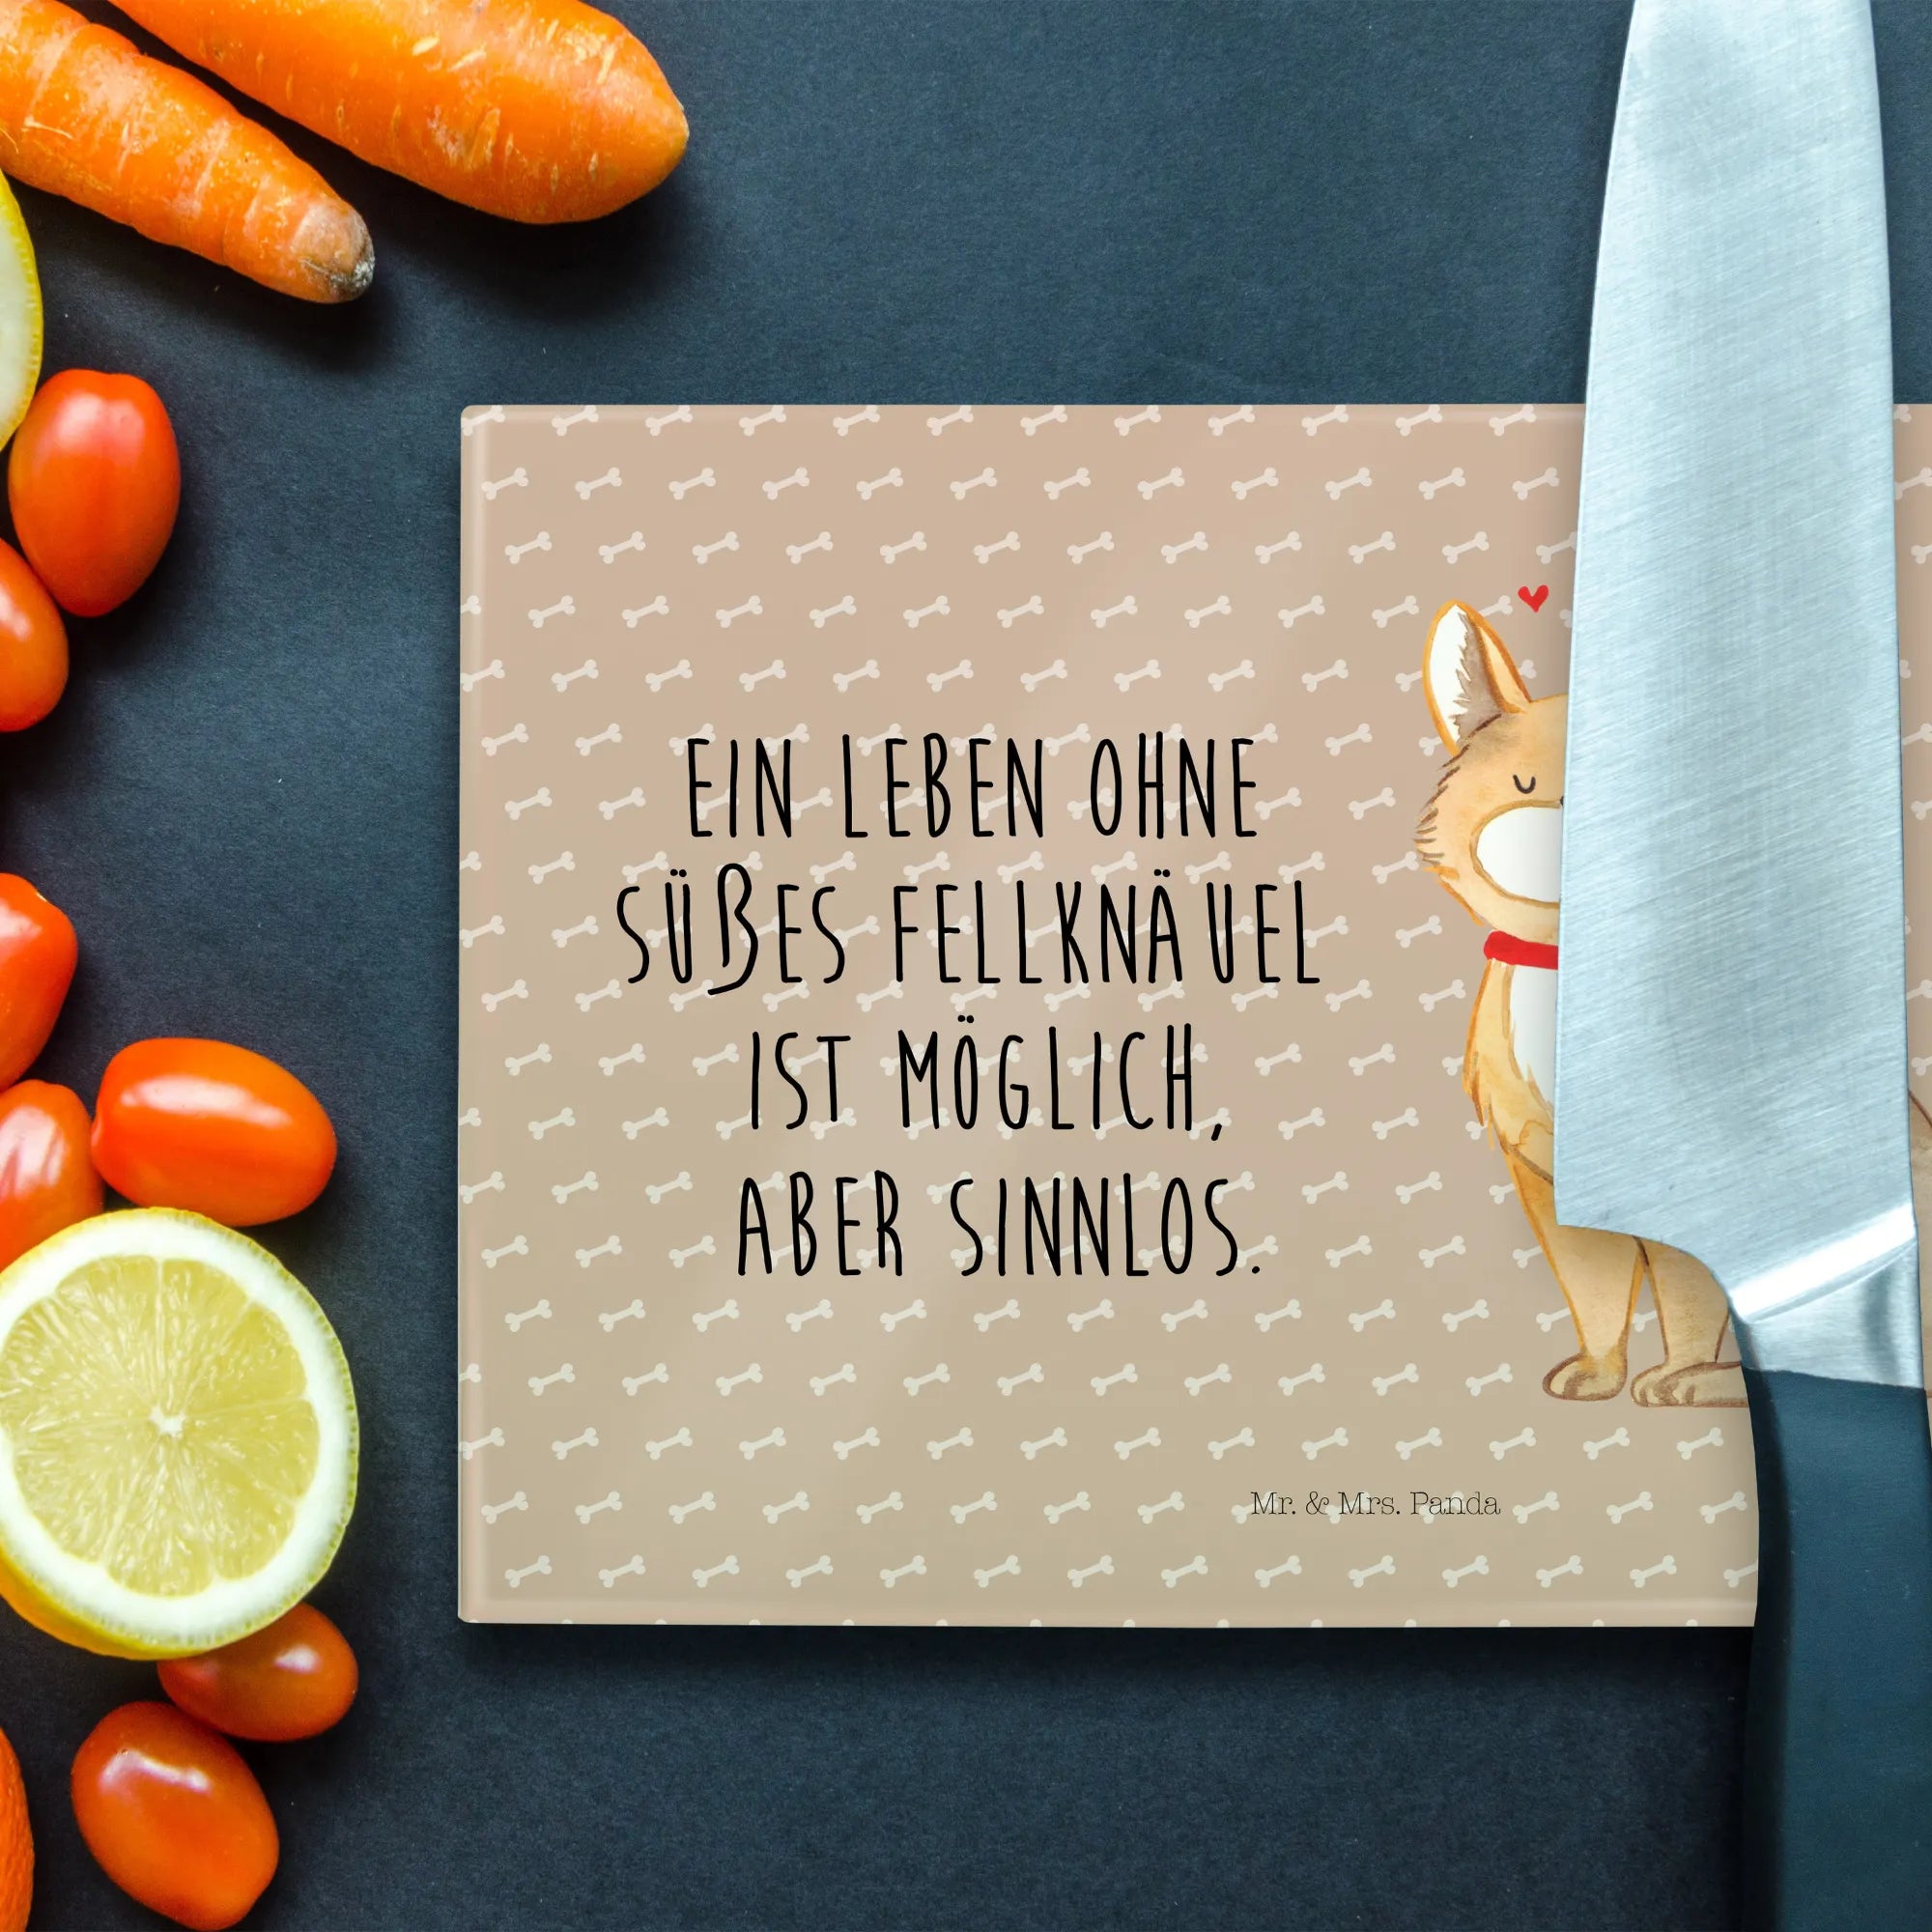 EIN LEBEN OHNE
SÜßES FELLKNÄUEL
IST MÖGLICH,
ABER SINNLOS.
Mr. & Mrs. Panda